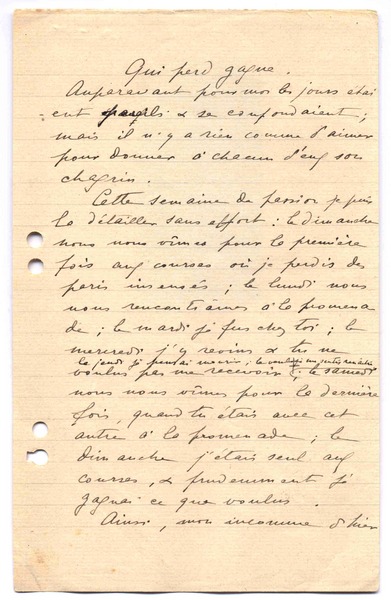 Qui perd gagne.
Auparavant pour moi les jours étai
ent pareils & se confondaient;
mais il n'y a rien comme d'aimer
pour donner à chacun d'eux son
chagrin.
Cette semaine de passion je puis
la détailler sans effort: le dimanche
nous nous vîmes pour la première
fois aux courses où je perdis des
paris insensés; le lundi nous
nous rencontrâmes à la promena
de; le mardi je fus chez toi; le
mercredi j'y revins & tu ne
le jeudi je pensai mourir; le vendredi
voulus pas me recevoir; le samedi
nous nous vîmes pour la dernière
fois, quand tu étais avec cet
autre à la promenade; le
dimanche j'étais seul aux
courses, & prudemment je
gagnai ce que voulus.
Ainsi, mon inconnue d'hier